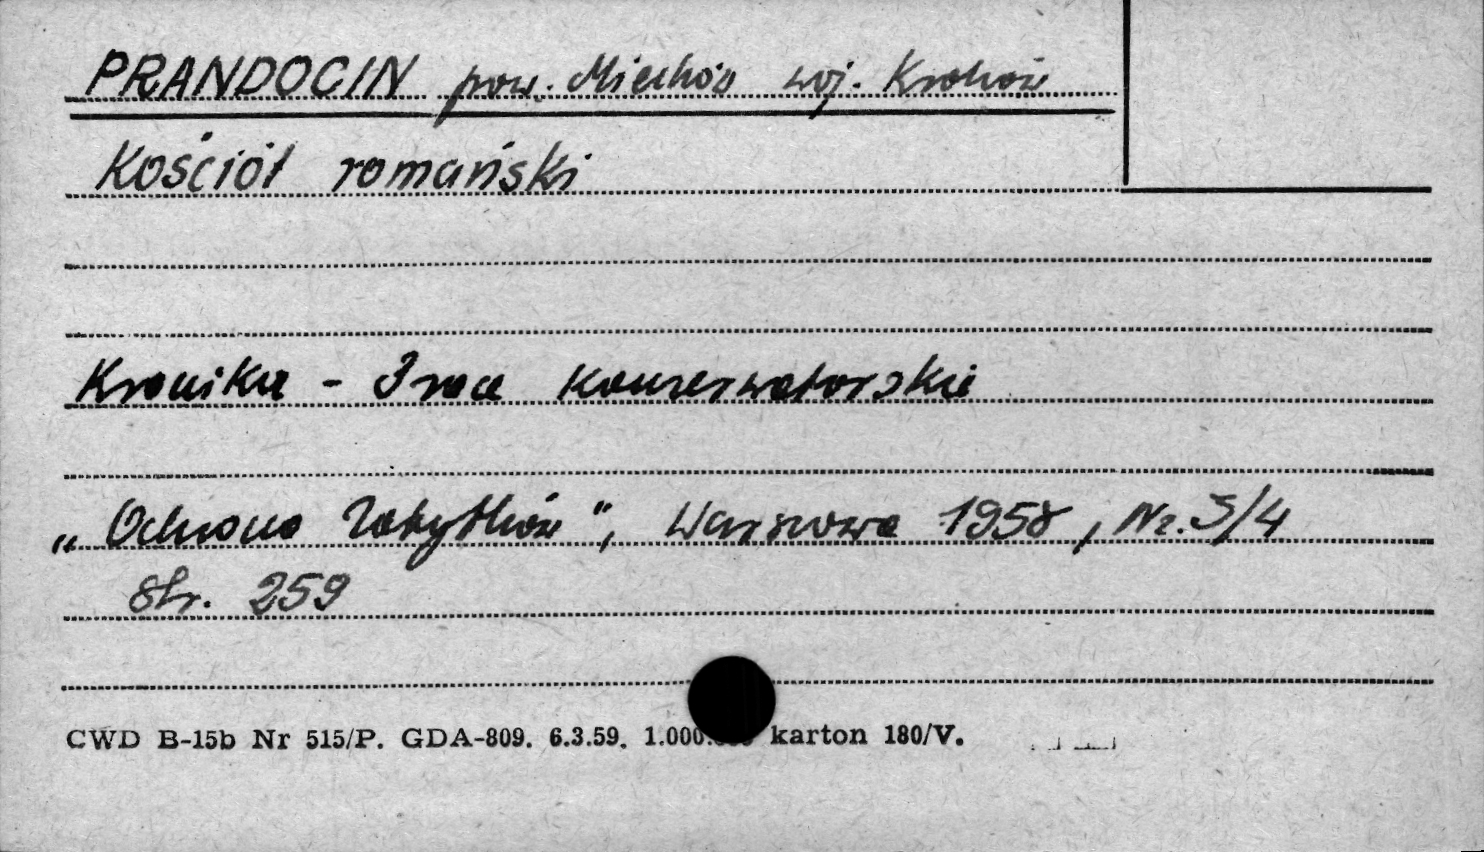 PRANDOCIN pow. Miechów woj. Kraków
Kościół romański
Kronika - Prace konserwatorskie
„Ochrona Zabytków", Warszawa 1958, Nr. 3/4
str. 259
CWD B-15b Nr 515/P. GDA-809. 6.3.59. 1.000. karton 180/V.